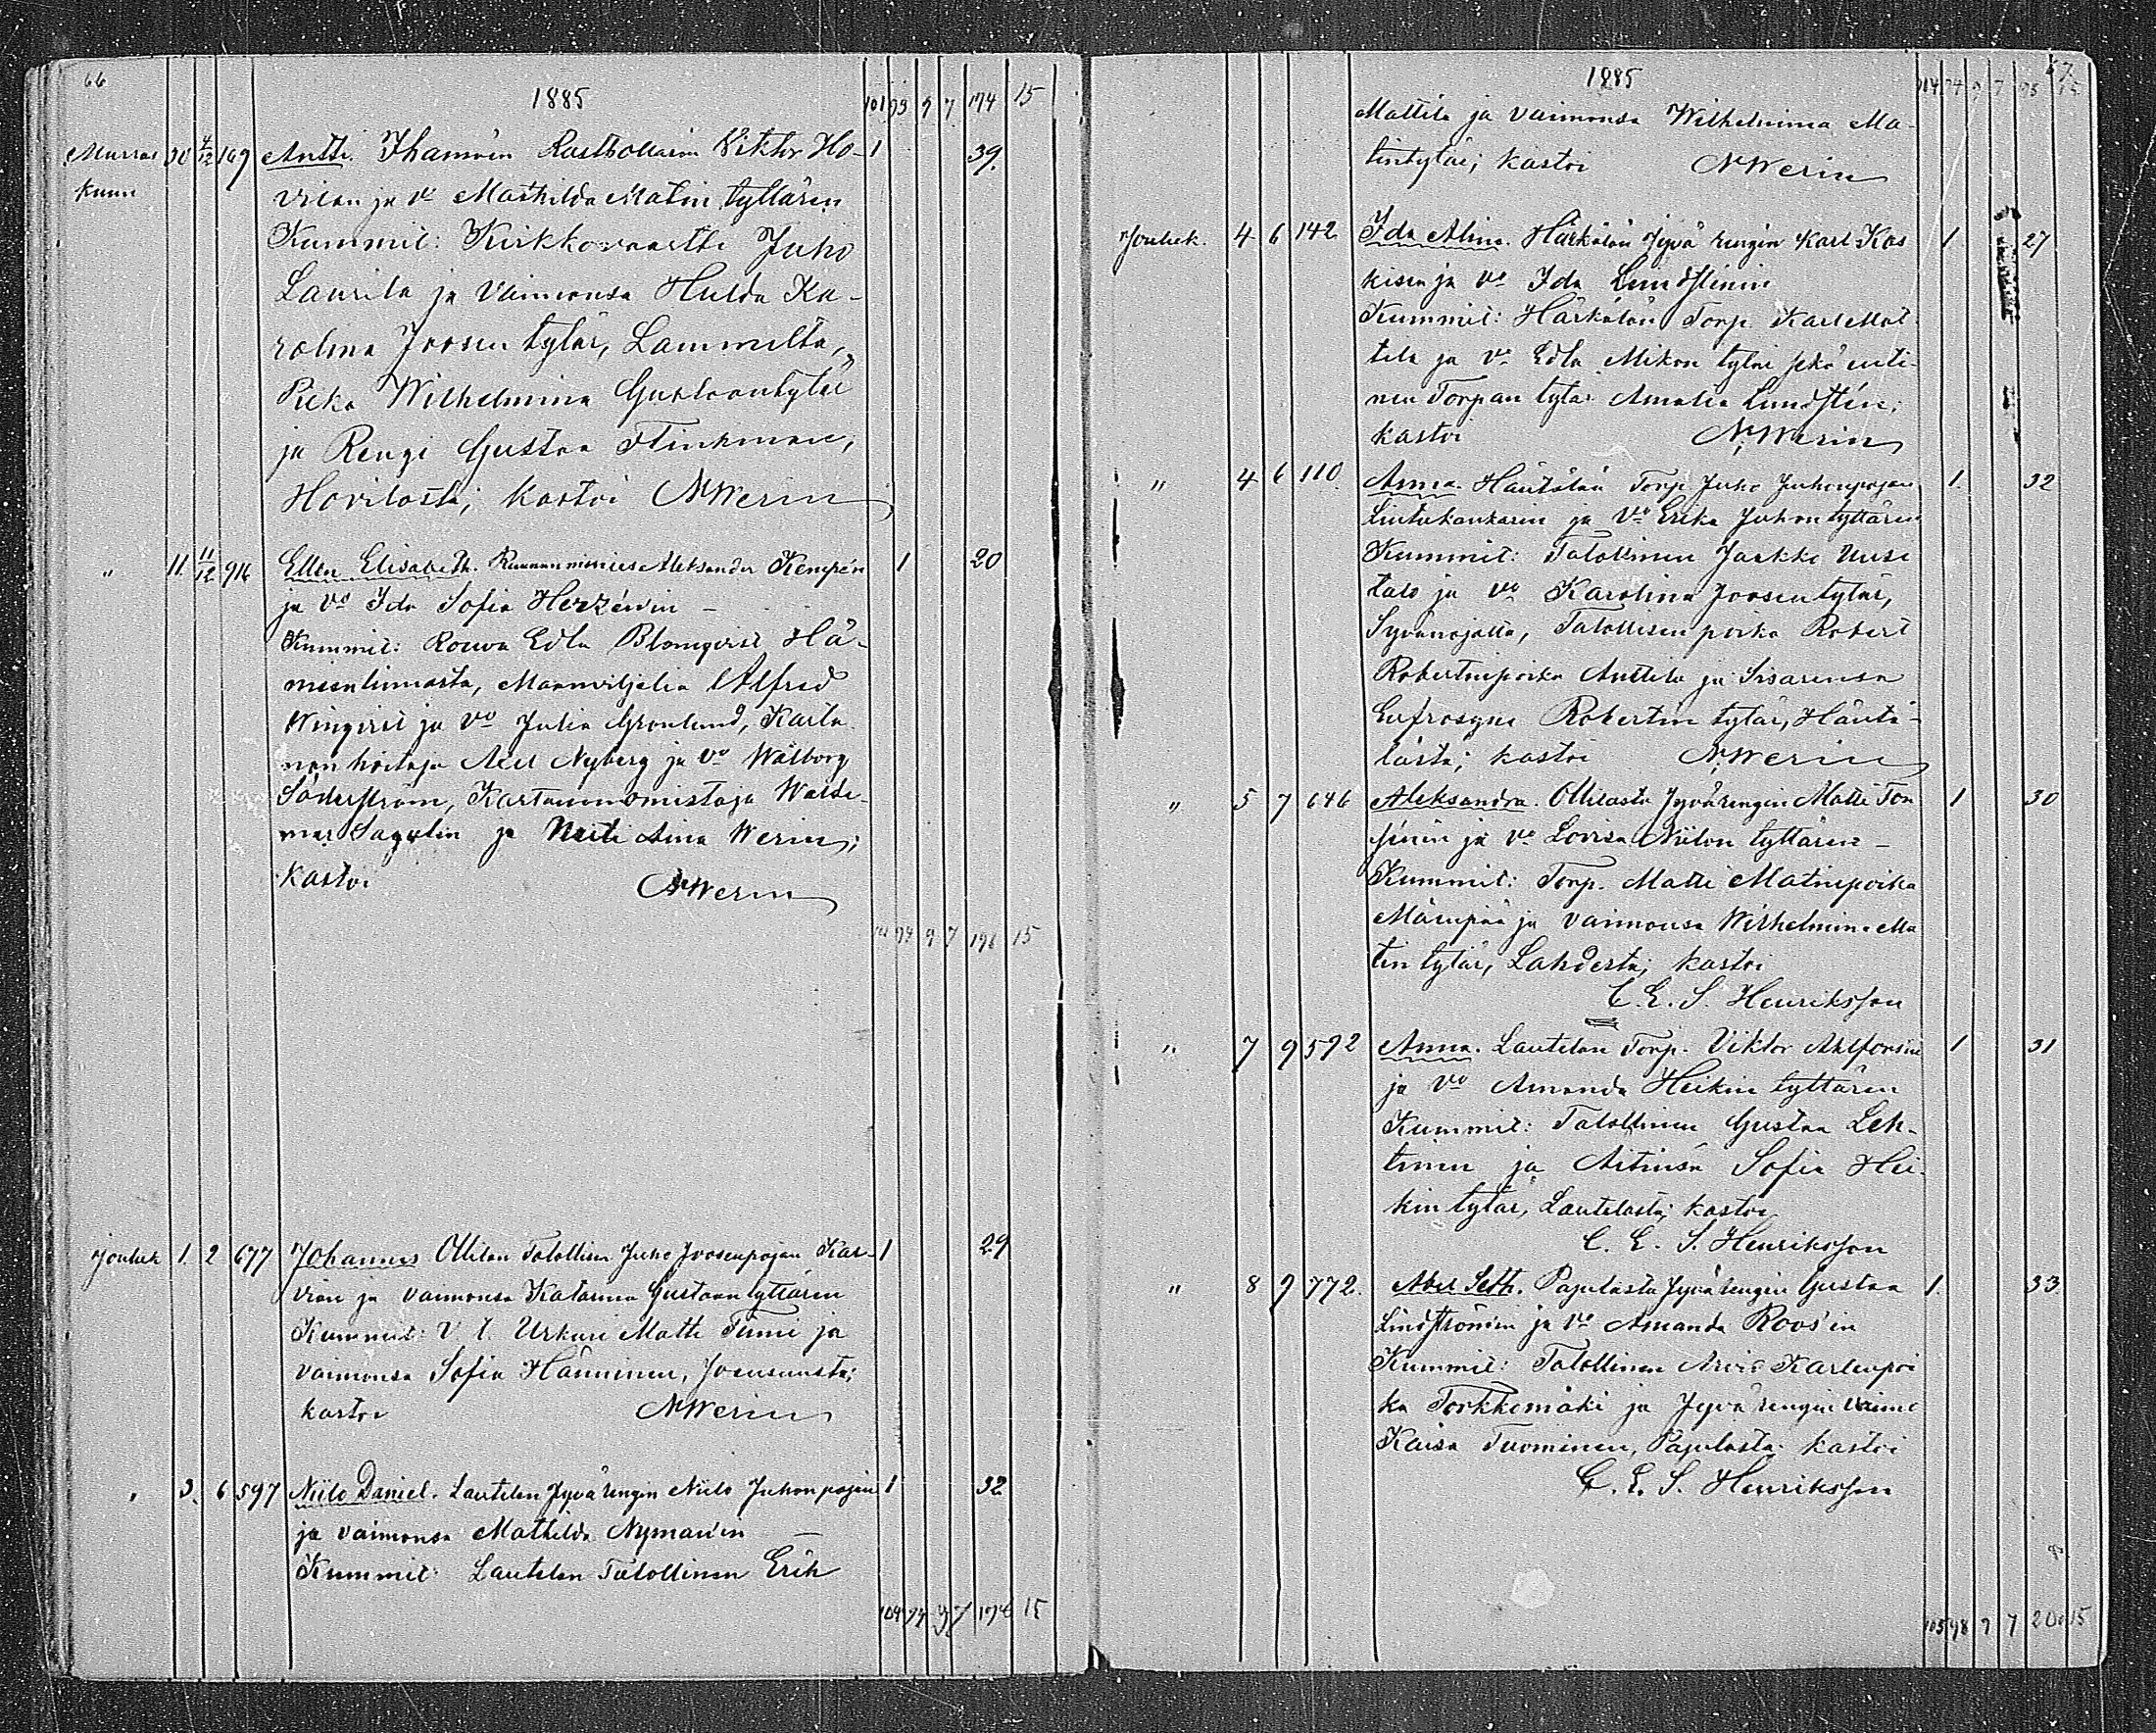 66
1885
101 93 9 7 174 15
Marras 30 4/12 169 Antti. Ihamäen Rusthollarin Viktor Ho- 1 39.
kuun
vilan ja vo Mathilda Matin tyttären
Kummit: Kirkkovaartti Juho
Laurila ja Vaimonsa Hulda Ka-
rolina Joosentytär, Lammilta,
Piika Wilhelmina Gustaantytär
ja Rengi Gustaa Flinkman,
Hovilasta; kastoi NWerin
" 11. 11/12 916 Ellen Elisabeth. Aleksander Kempe'n 1 20
ja vo Ida Sofia
Kummit: Rouva Edla Blomqvist Hä-
meenlinnasta, Maanviljeliä Alfred
Winqvist ja vo Julia Grönlund, Karta-
non hoitaja Axel Nyberg ja vo Walborg
Söderström, Kartanonomistaja Walde-
mar Sagulin ja Neiti Aina Werin;
kastoi NWerin
9 7 196 15
Jouluk 1. 2 677 Johannes Ollilan Talollisen Juho Joosenpojan Kar- 1 29
vian ja vaimonsa Katarina Gustaantyttären
Kummit: V. t. Urkuri Matti Tammi ja
vaimonsa Sofia Hänninen, Joensuusta;
kastoi NWerin
" 3. 6 597 Niilo Daniel. Lautelan Jyvärengin Niilo Juhonpojan 1 32
ja vaimonsa Mathilda Nyman'in
Kummit: Lautelan Talollinen Erik
67.
1885
Mattila ja vaimonsa Wilhelmina Ma-
tintytär; kastoi NWerin
Jouluk. 4 6 142 Ida Alina. Härkälän Jyvä rengin Karl Kos 1 27
kisen ja vo Ida Lundstenin
Kummit: Härkälän Torp. Karl Mat
tila ja vo Edla Mikon tytär sekä enti-
nen Torpan tytär Amalia Lundsten;
kastoi N.Werin
" 4 6 110 Anna. Häntälän Torp. Juho Juhonpojan 1 32
Lintukankarin ja vo Erika Juhon tyttären
Kummit: Talollinen Jaakko Uusi
talo ja vo Karolina Joosentytär,
Syvänojalta, Talollisen poika Robert
Robertinpoika Anttila ja Sisarensa
Eufrosyne Robertin tytär, Häntä-
lästä; kastoi N.Werin
" 5 7 646 Aleksandra. Ollilasta Jyvärengin Matti 1 30
ja vo Lovisa Niilon tyttären -
Kummit: Torp. Matti Matinpoika
Mäenpää ja vaimonsa Wilhelmina Ma
tin tytär, Lahdesta; kastoi
C. E. S. Henriksson
" 7 9 592 Anna. Lautelan Torp. Viktor Ahlforsin 1 31
ja vo Amanda Heikin tyttären
Kummit: Talollinen Gustaa Leh-
tinen ja Äitinsä Sofia Hei-
kin tytär, Lautelasta; kastoi
C. E. S. Henriksson
" 8 9 772. Abel Seth. Papulasta Jyvärengin Gustaa 1. 33
Lindströmin ja vo Amanda Roos'in
Kummit: Talollinen Arvid Karlenpoi
ka Torkkomäki ja Jyvä rengin vaimo
Kaisa Tuominen, Papulasta. kastoi
C. E. S. Henriksson